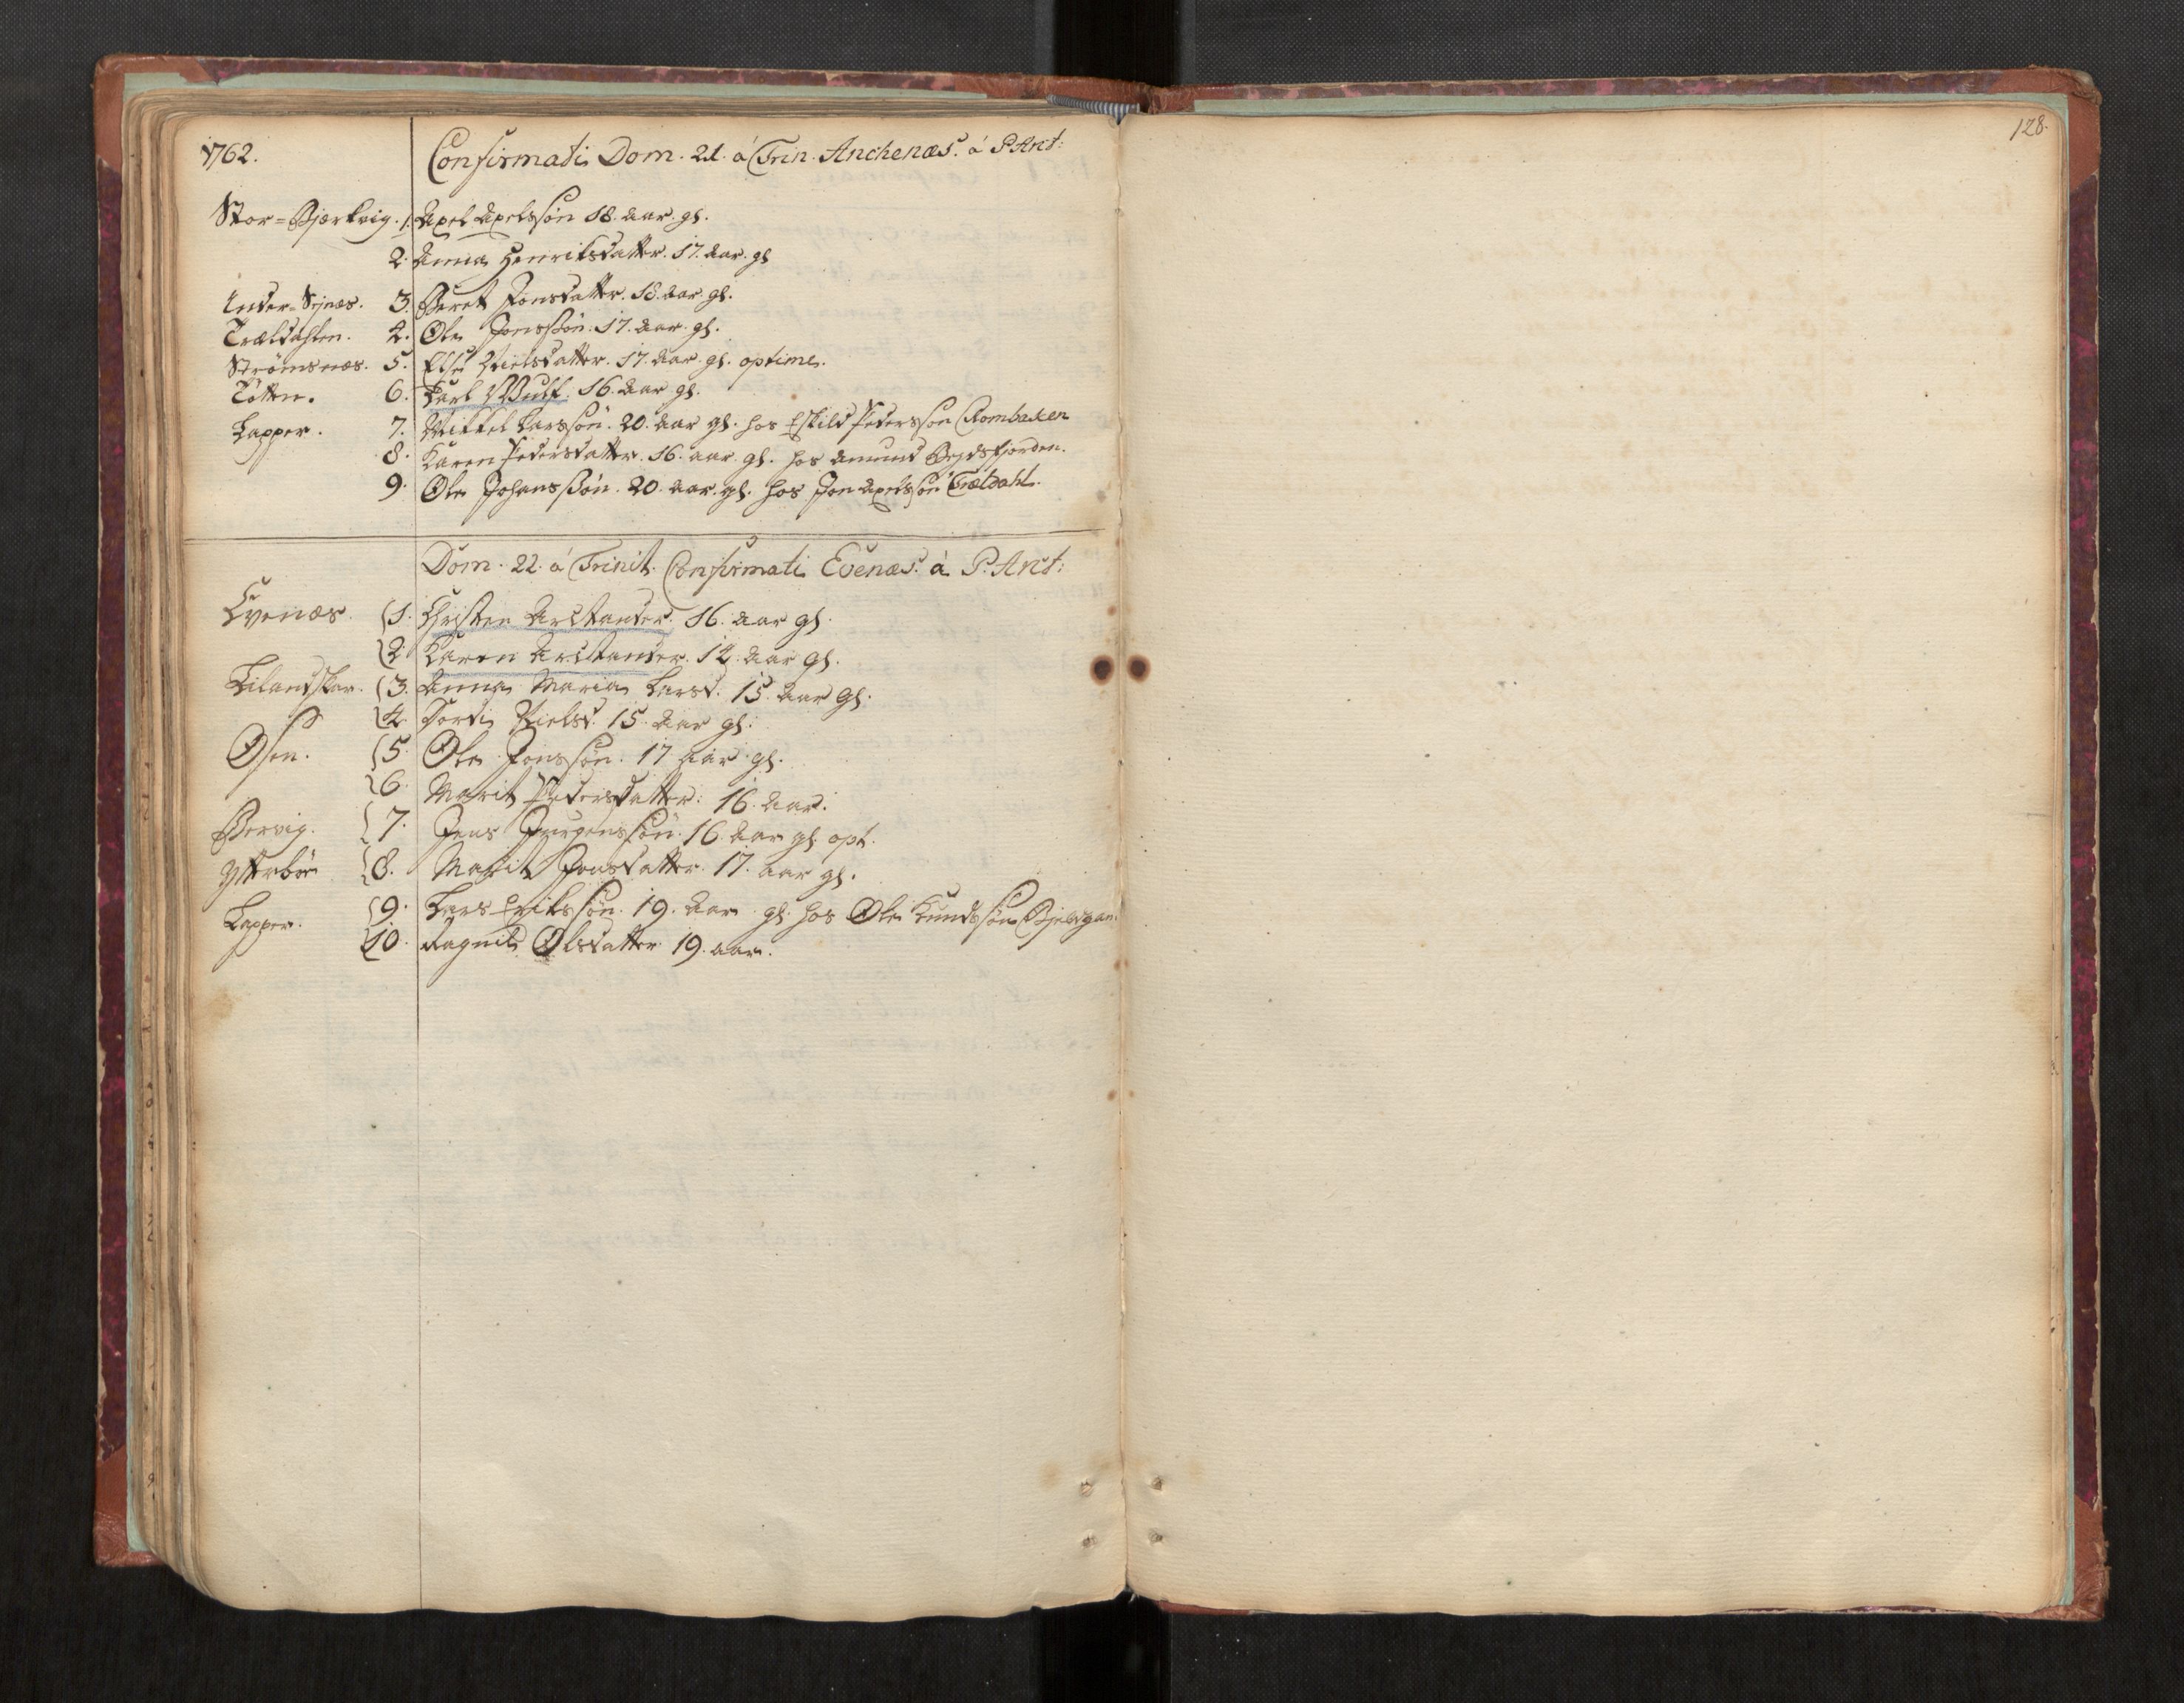 1762. Confirmati Dom. 21. á Trin. Anchenæs. á P. Ant:
Stor=Bjerkvig. 1. Axel Axelssøn 18. aar. gl.
2. Anna Henriksdatter. 17. aar. gl
Inder=Sejnæs. 3. Beret Jonsdatter. 18. aar. gl.
Trældahlen. 4. Ole Jonssøn. 17. aar. gl.
Strømsnæs. 5. Else Nielsdatter. 17. aar. gl. optime.
Tøtten. 6. Carl Wulf. 16. aar gl.
Lapper. 7. Mikkel Larssøn. 20. aar gl. hos Eskild Pedersson Rombaken
8. Karen Pedersdatter. 16. aar. gl. hos Amund
9. Ole Johanssøn. 20. aar. gl. hos Jon Axelssøn Trældahl.
Dom. 22. á Trinit. Confirmati Evenæs. á P. Ant:
Evenæs. 1. Christen Arctander. 16. aar gl.
2. Karen Arctander. 14. aar gl.
Lilandskar. 3. Anna Maria Larsd. 15. aar gl.
4. Dordi Nielsd. 15. aar gl.
Osen. 5. Ole Jonssøn. 17 aar gl.
6. Marit Pedersdatter. 16. aar.
Bervig. 7. Jens Jurgenssøn. 16. aar gl. opt.
Ytterbøe 8. Marit Jonsdatter. 17. aar gl.
Lapper. 9. Lars Erikssøn. 19. aar. gl. hos Ole Kundssøn
10. Ragnil Olsdatter 19. aar.
128.